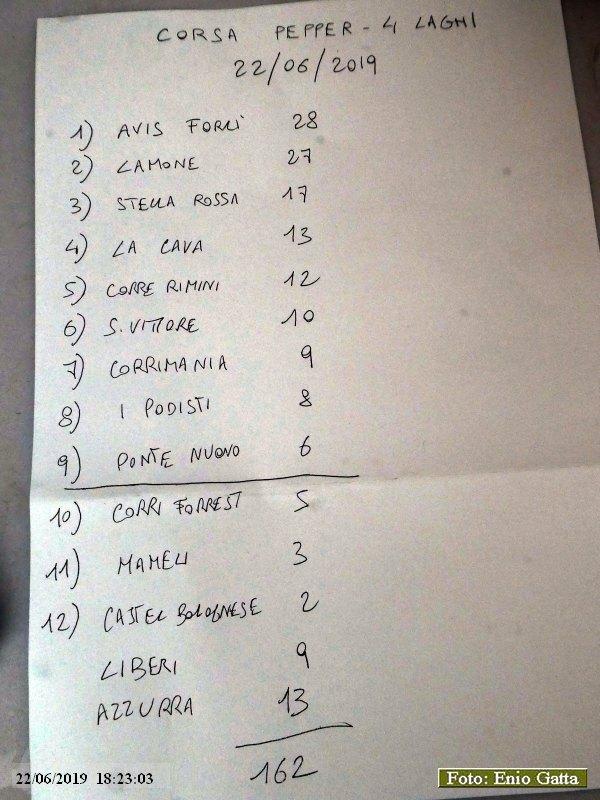 CORSA PEPPER - 4 LAGHI
22/06/2019
1) AVIS FORLÌ 28
2) LAMONE 27
3) STELLA ROSSA 17
4) LA CAVA 13
5) CORRE RIMINI 12
6) S. VITTORE 10
7) CORRIMANIA 9
8) I PODISTI 8
9) PONTE NUOVO 6
10) CORRI FORREST 5
11) MAMELI 3
12) CASTEL BOLOGNESE 2
LIBERI 9
AZZURRA 13
162
22/06/2019 18:23:03
Foto: Enio Gatta